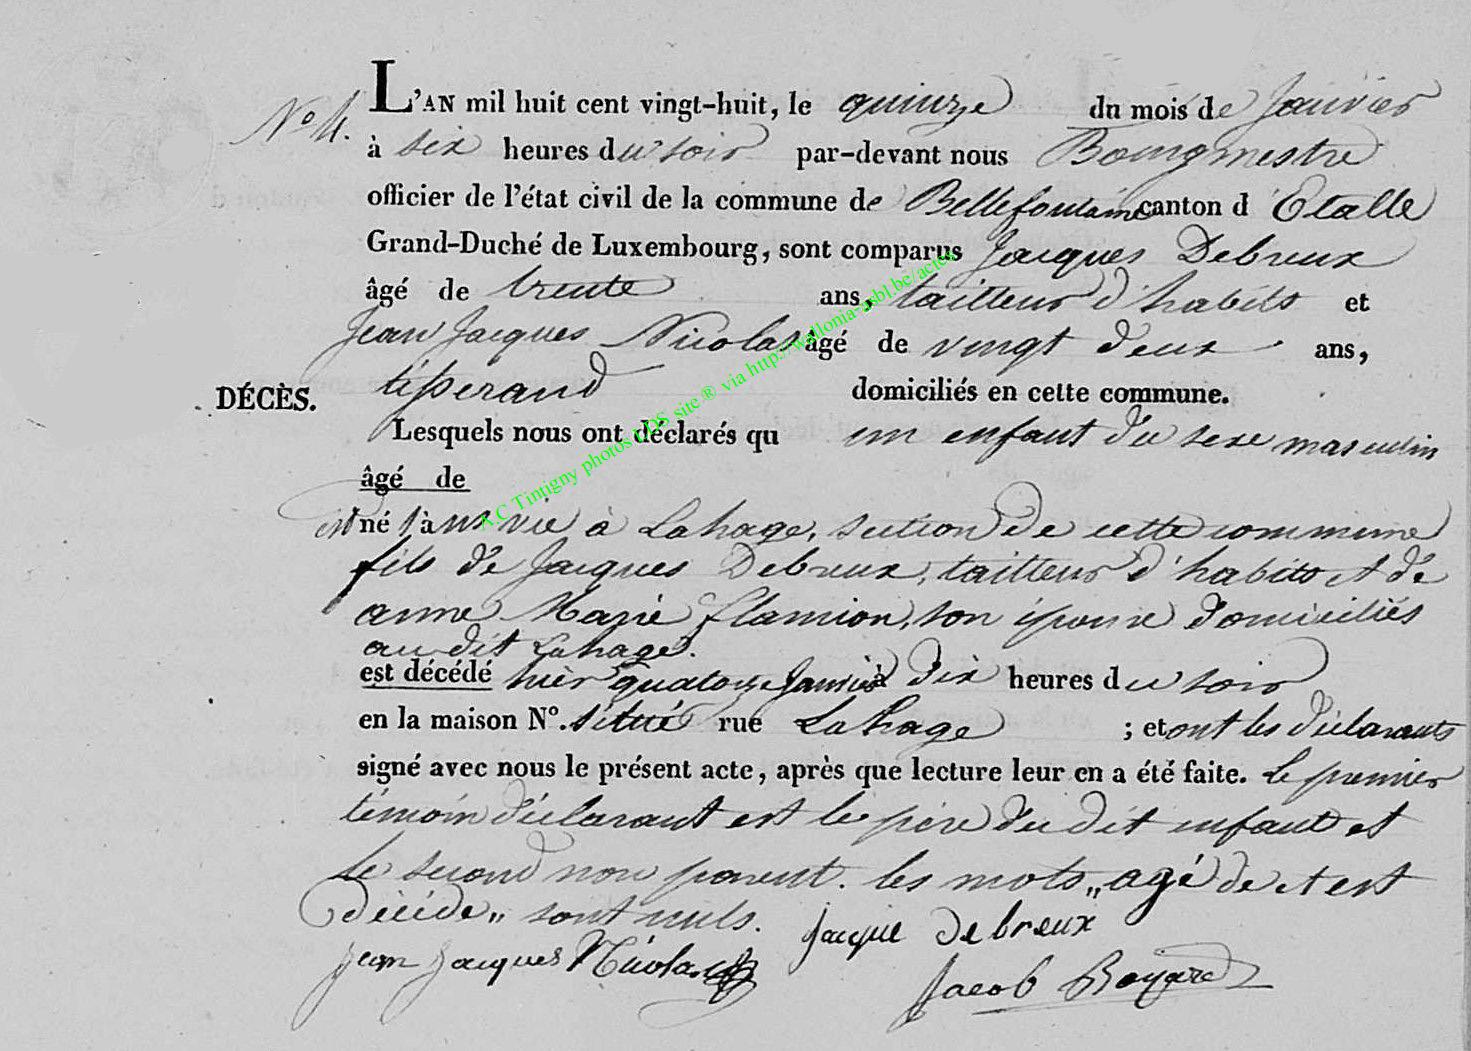 No 4.
L'AN mil huit cent vingt-huit, le quinze du mois de Janvier
à six heures du soir par-devant nous Bourgmestre
officier de l'état civil de la commune de Bellefontaine canton d'Etalle
Grand-Duché de Luxembourg, sont comparus Jacques Debreux
âgé de trente ans, tailleur d'habits et
Jean Jacques Nicolas âgé de vingt deux ans,
DÉCÈS. tisserand domiciliés en cette commune.
Lesquels nous ont déclarés qu un enfant du sexe masculin
âgé de
est né sans vie à Lahage, section de cette commune
fils de Jacques Debreux, tailleur d'habits et de
anne Marie flamion, son épouse domiciliés
au dit Lahage.
est décédé hier quatorze Janvier à dix heures du soir
en la maison No. situé rue Lahage ; et ont les déclarants
signé avec nous le présent acte, après que lecture leur en a été faite. Le premier
témoin déclarant est le père du dit enfant et
le second non parent. les mots „agé de et est
décédé„ sont nuls. jacque debreux
jean jacques Nicolas
Jacob
A.C Tintigny photos LDS site ® via http://wallonia-asbl.be/actes